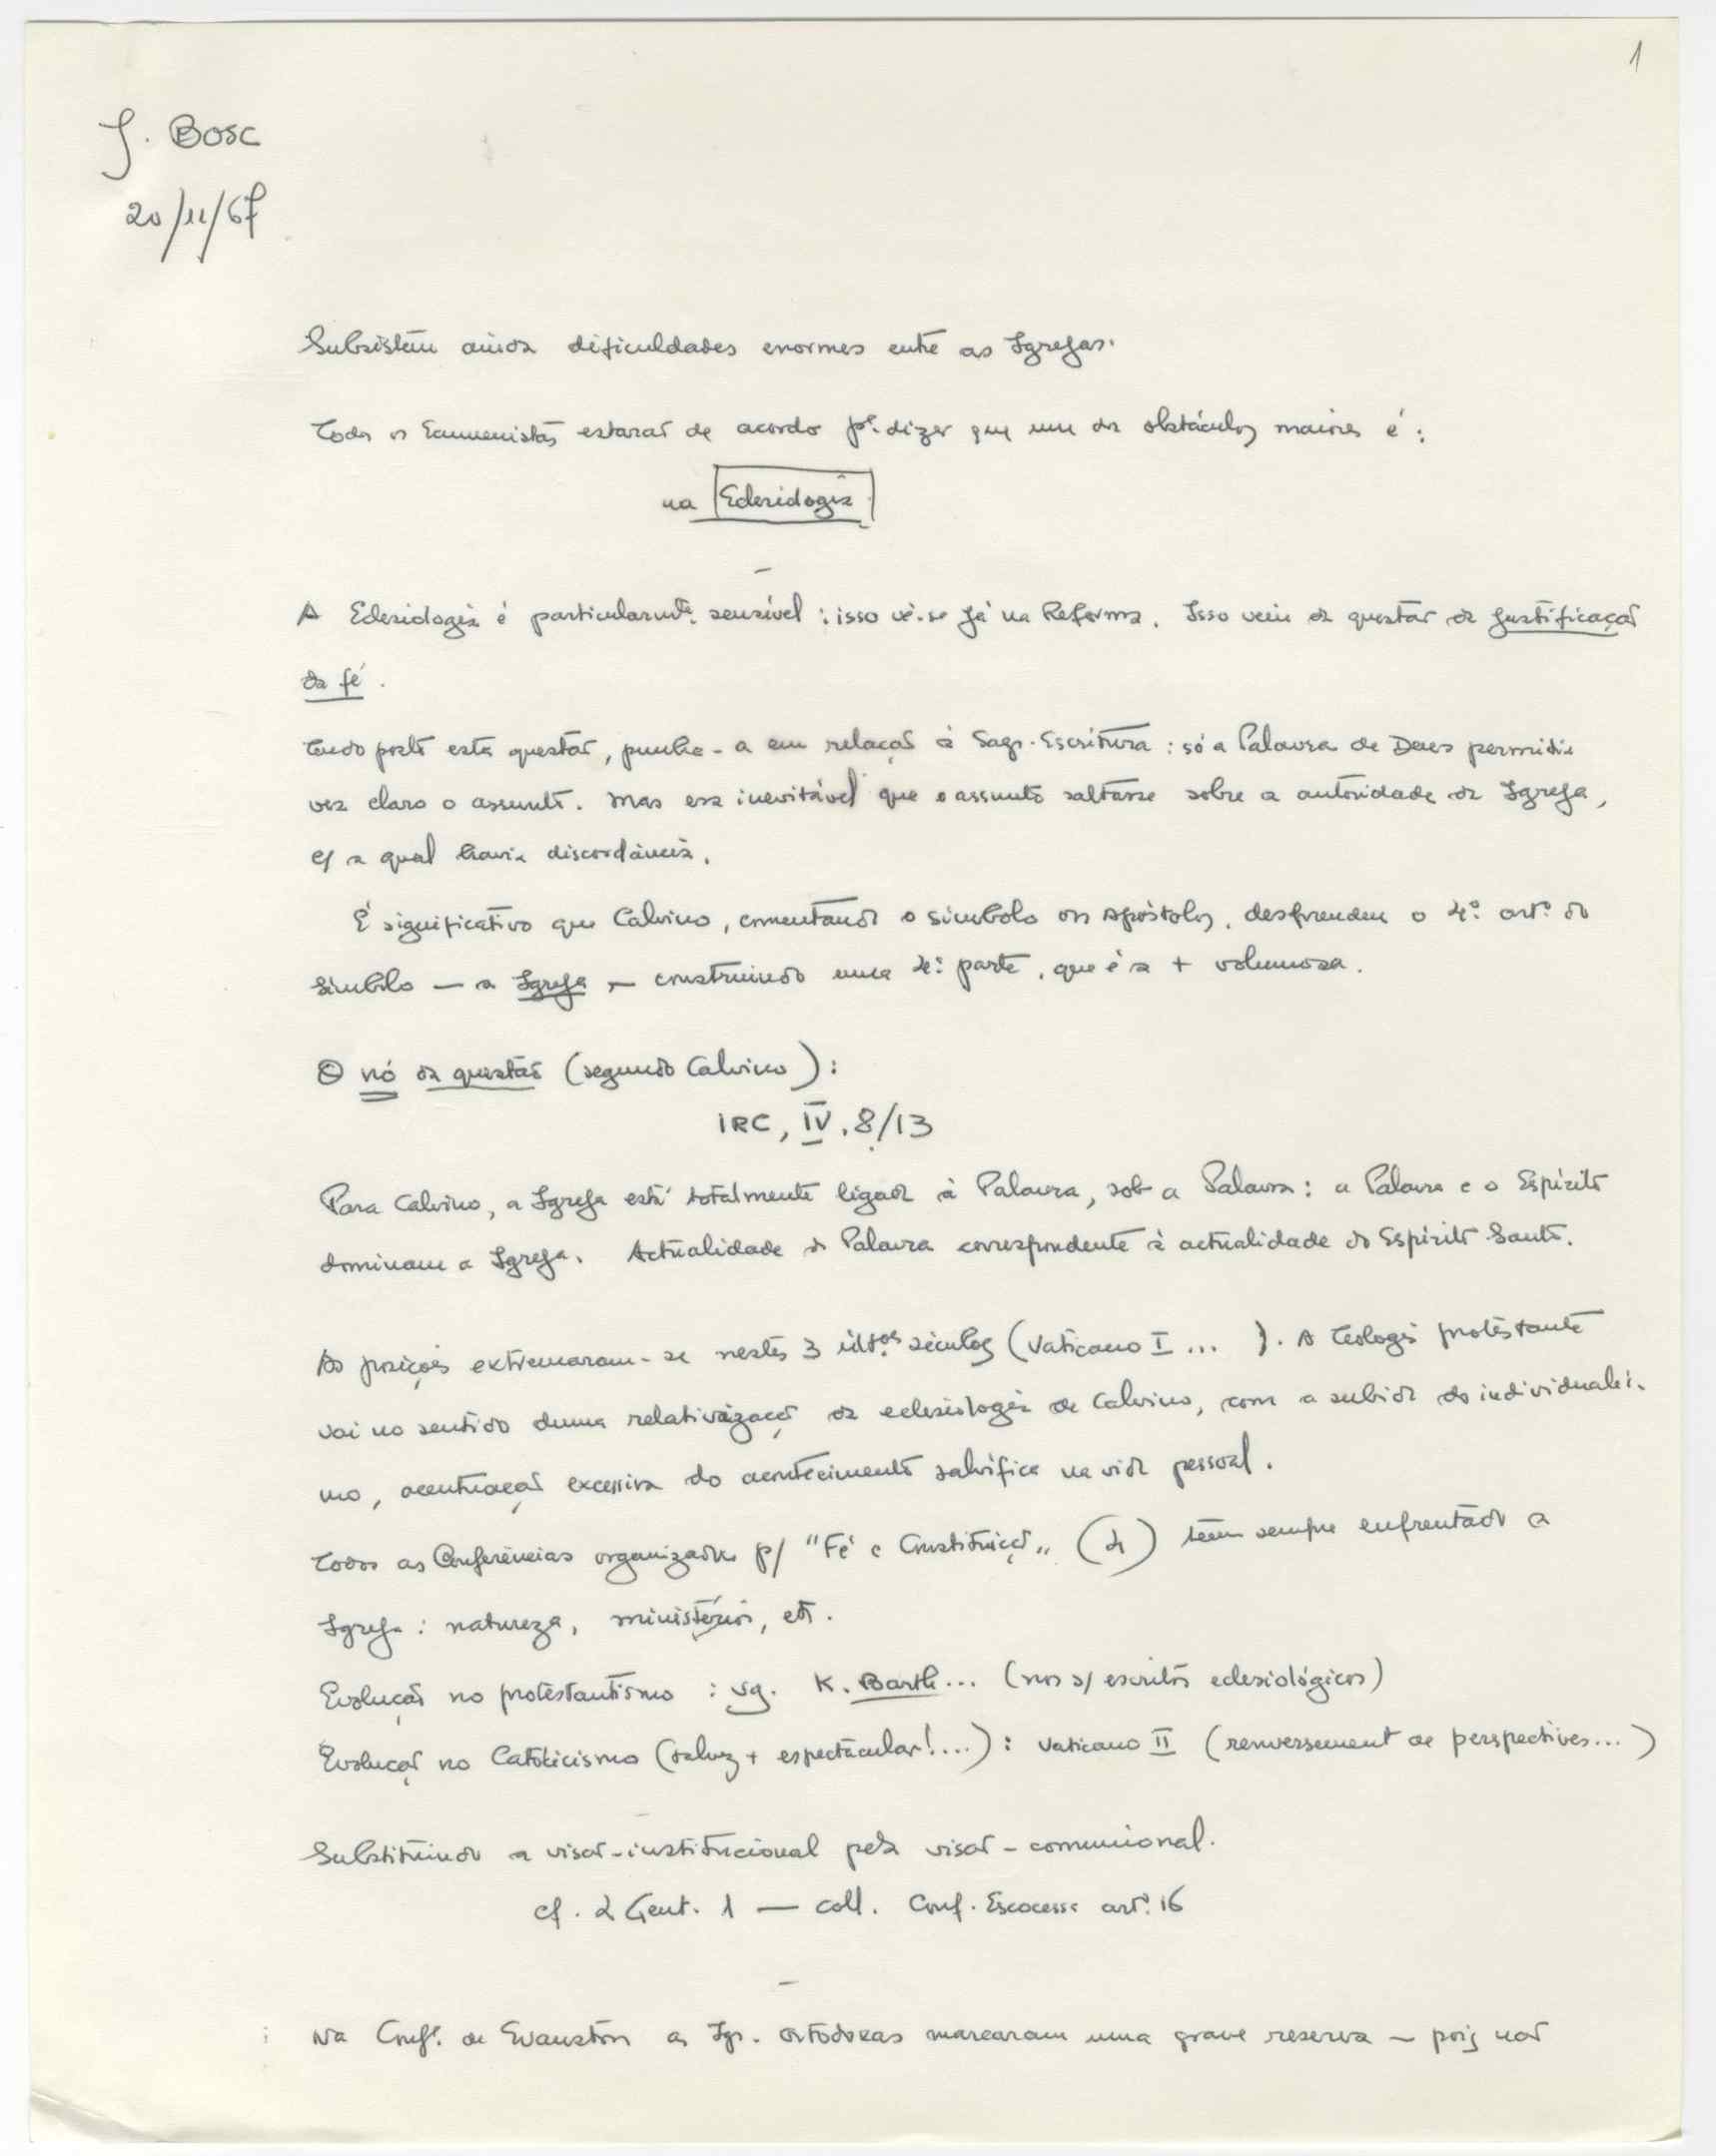 1
J. Bosc
20/11/67
Subsistem ainda dificuldades enormes entre as Igrejas.
Todos os Ecumenistas estarão de acordo pª. dizer que um dos obstáculos maiores é:
na Eclesiologia
A Eclesiologia é particularmte. sensível: isso vê-se já na Reforma. Isso vem da questão da justificação
da fé.
Tendo posto esta questão, punha-a em relação à Sagr. Escritura: só a Palavra de Deus permitia
ver claro o assunto. Mas era inevitável que o assunto saltasse sobre a autoridade da Igreja,
c/ a qual havia discordância.
É significativo que Calvino, comentando o símbolo dos Apóstolos, desprendeu o 4º. artº. do
Símbolo — a Igreja — construindo uma 4ª. parte, que é a + volumosa.
O nó da questão (segundo Calvino):
IRC, IV, 8/13
Para Calvino, a Igreja está totalmente ligada à Palavra, sob a Palavra: a Palavra e o Espírito
dominam a Igreja. Actualidade da Palavra correspondente à actualidade do Espírito Santo.
As posições extremaram-se nestes 3 últºs. séculos (Vaticano I ... ). A Teologia protestante
vai no sentido duma relativização da eclesiologia de Calvino, com a subida do individualis-
mo, acentuação excessiva do acontecimento salvífico na vida pessoal.
Todas as Conferências organizadas p/ "Fé e Constituição" (4) têm sempre enfrentado a
Igreja: natureza, ministérios, etc.
Evolução no protestantismo: vg. K. Barth... (nos s/ escritos eclesiológicos)
Evolução no Catolicismo (talvez + espectacular!...): Vaticano II (renversement de perspectives...)
Substituindo a visão-institucional pela visão-comunional.
cf. L Gent. 1 — coll. Conf. Escocesa artº. 16
Na Confª. de Evanston as Igr. ortodoxas marcaram uma grave reserva — pois não